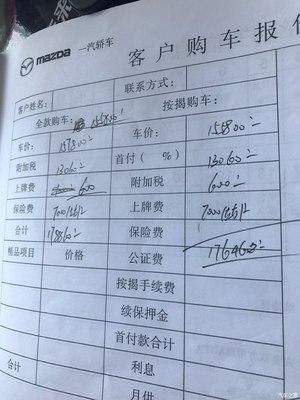 mazda 一汽轿车
客户购车报价
客户姓名: 联系方式:
全款购车: 155800 按揭购车:
车价: 157800 车价: 155800
附加税 13060 首付( %) 13060
上牌费 600 附加税 600
保险费 7000 上牌费 7000
合计 保险费
精品项目 价格 公证费 176460
按揭手续费
续保押金
首付款合计
利息
合计 月供
汽车之家